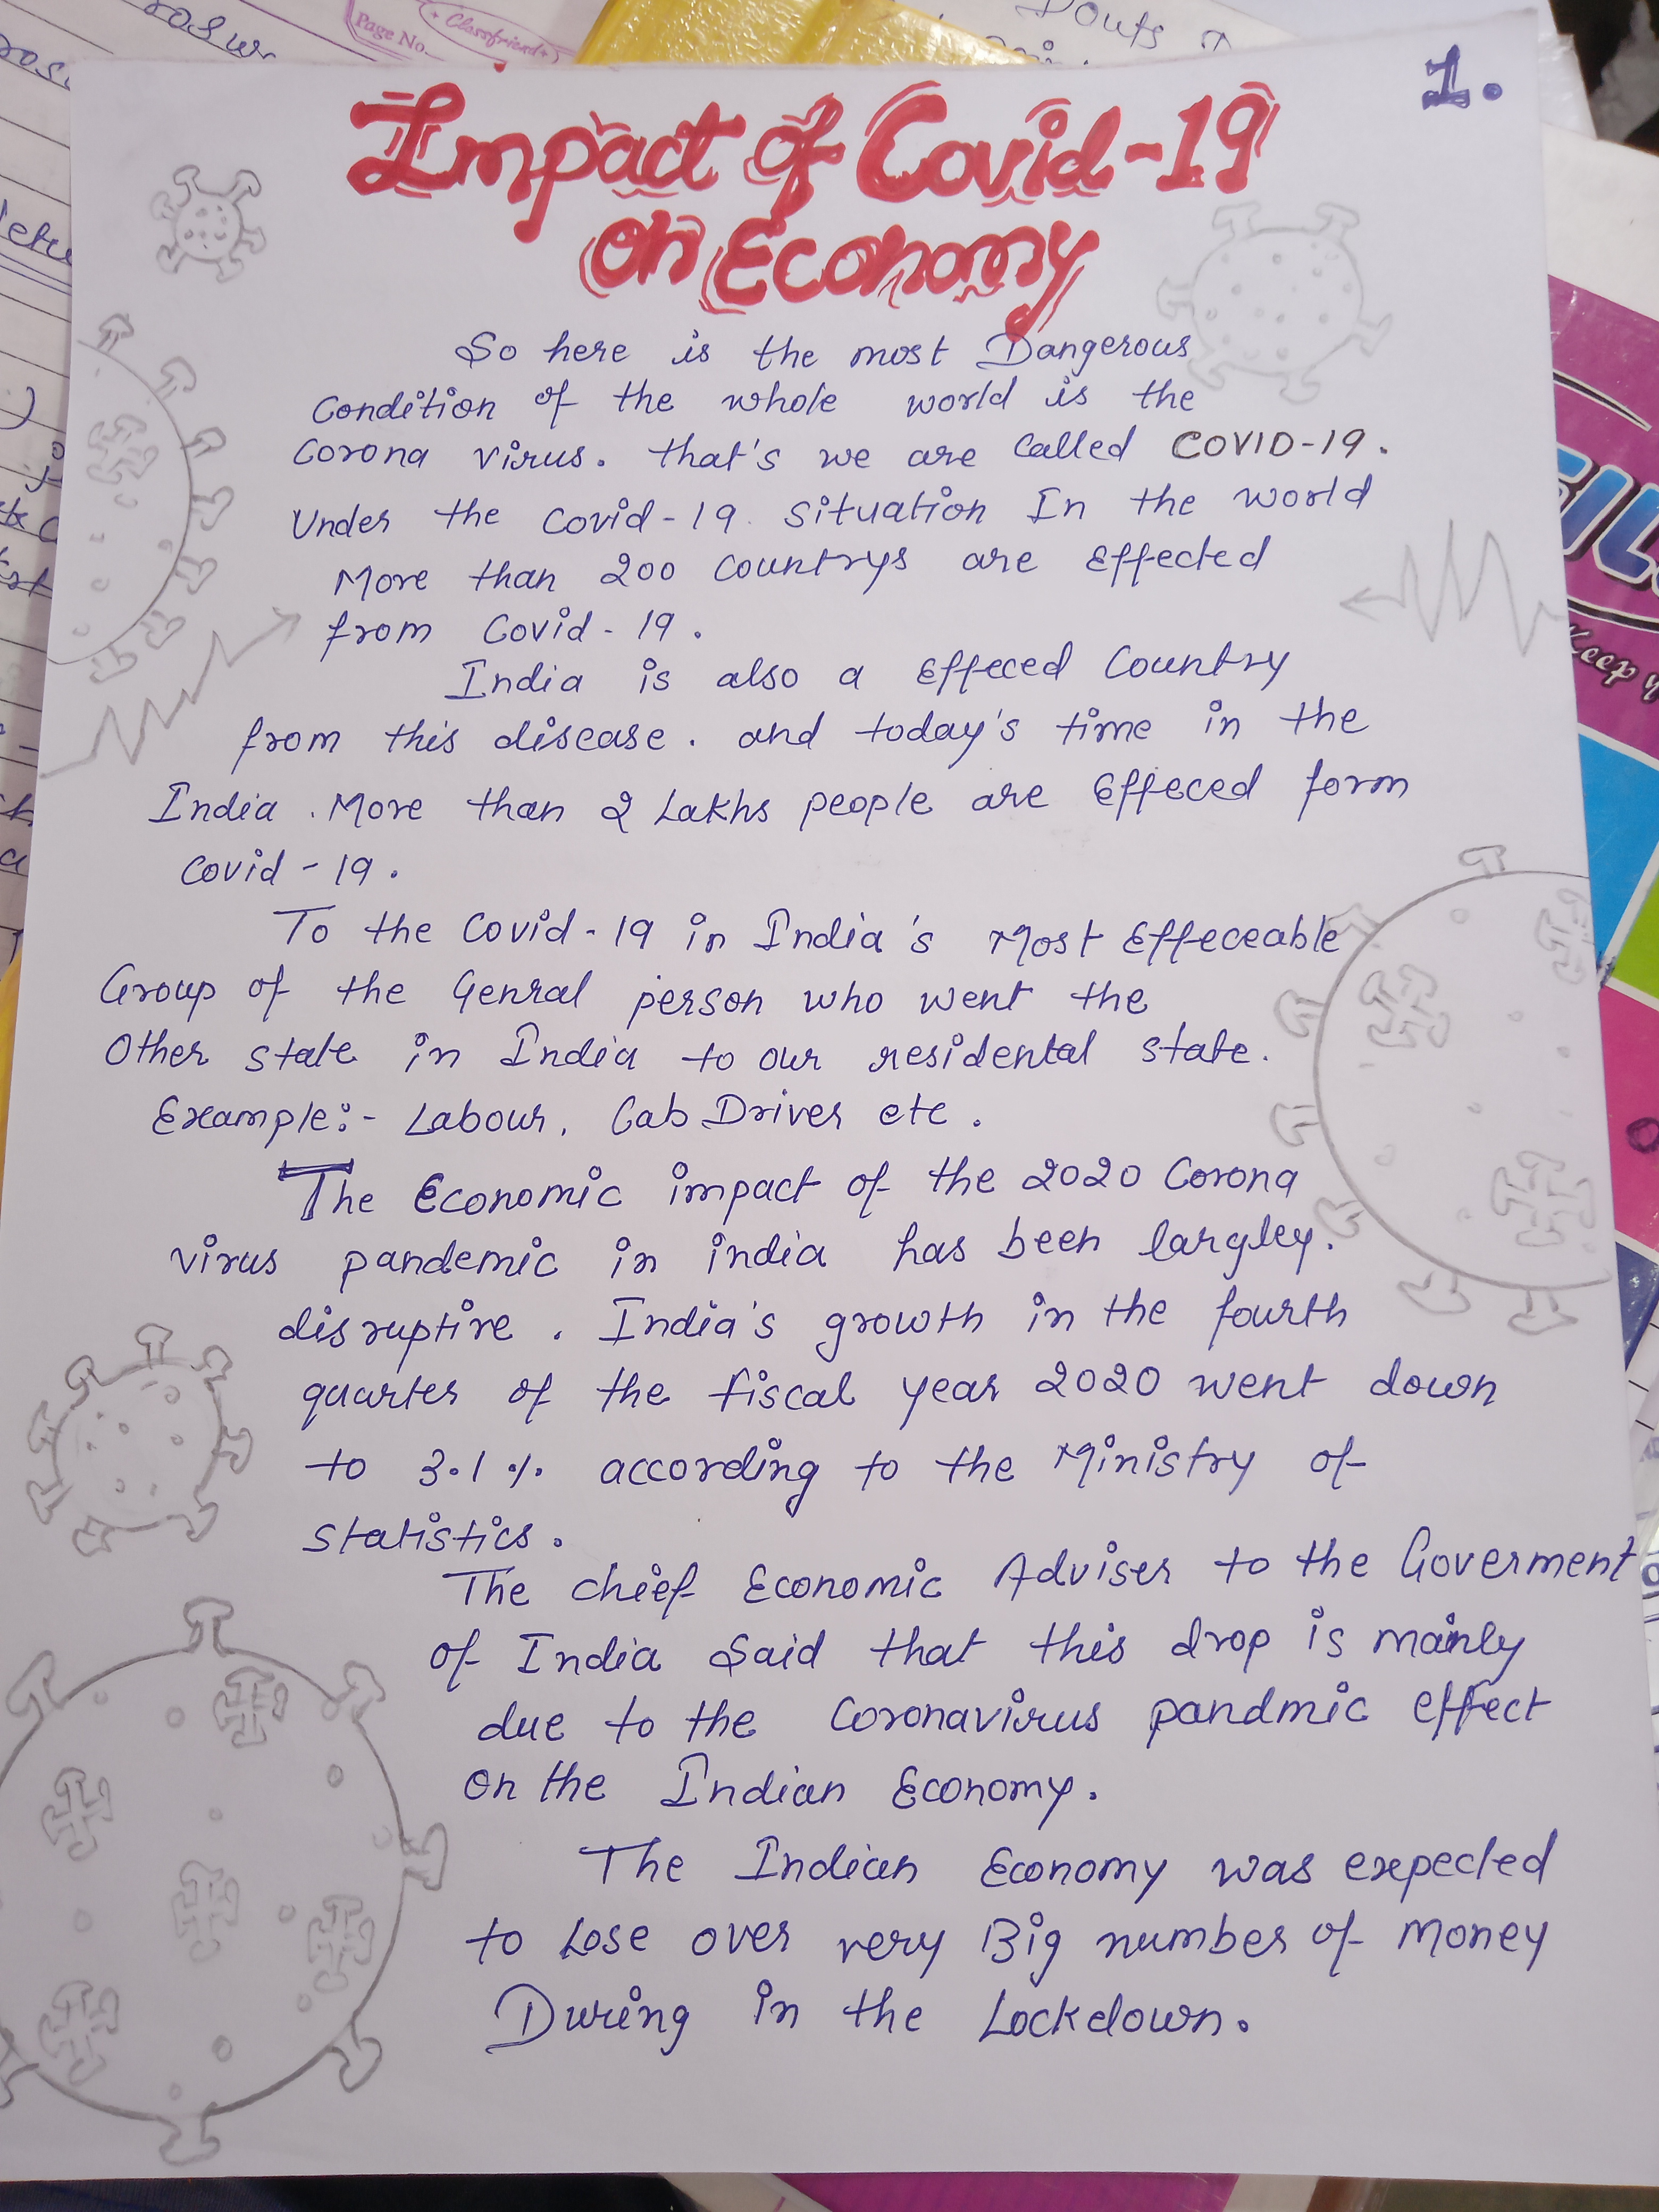 Page No.
Classfriend
1.
Impact of Covid-19
on Economy
So here is the most Dangerous
Condition of the whole world is the
Corona virus. that's we are called COVID-19.
Under the Covid-19. Situation In the world
More than 200 Countrys are Effected
from Covid-19.
India is also a Effeced Country
from this disease. and today's time in the
India. More than 2 Lakhs people are Effeced form
Covid-19.
To the Covid-19 in India's Most Effeceable
Group of the Genral person who went the
Other state in India to our residental state.
Example:- Labour, Cab Driver etc.
The Economic impact of the 2020 Corona
virus pandemic in india has been largley.
disruptive. India's growth in the fourth
quarter of the fiscal year 2020 went down
to 3.1 % according to the Ministry of
Statistics.
The chief Economic Adviser to the Goverment
of India Said that this drop is mainly
due to the Coronavirus pandmic effect
on the Indian Economy.
The Indian Economy was expected
to Lose over very Big number of Money
During in the Lockdown.
Keep